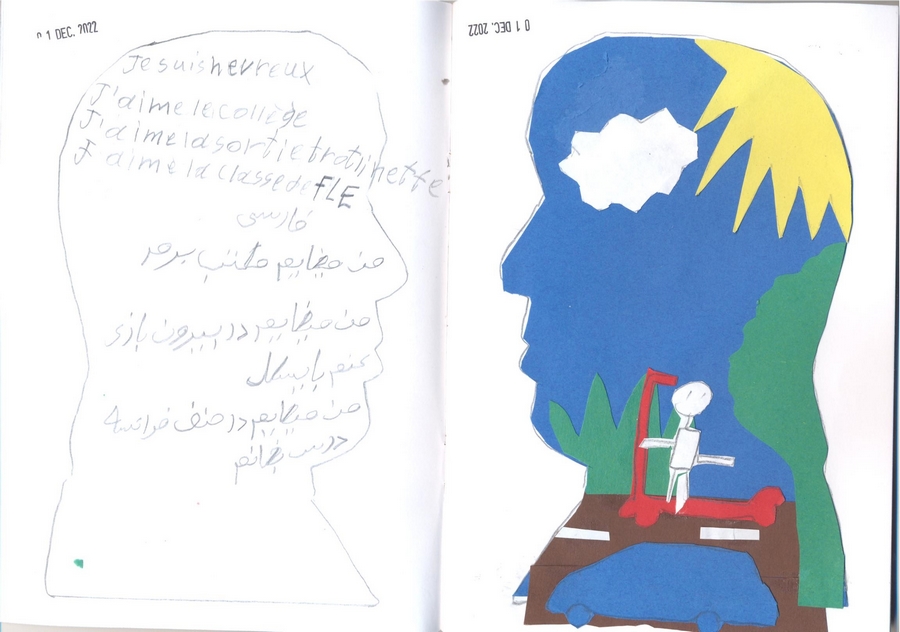 0 1 DEC. 2022
Je suis hevreux
J'aime le collège
J'aime la sortie trotinette
J'aime la classe de FLE
فارسی
من میخایم مکتب برم
من میخایم در بیرون بازی
کنم بایسکل
من میخایم در صنف فرانسه
درس بخانم
0 1 DEC. 2022